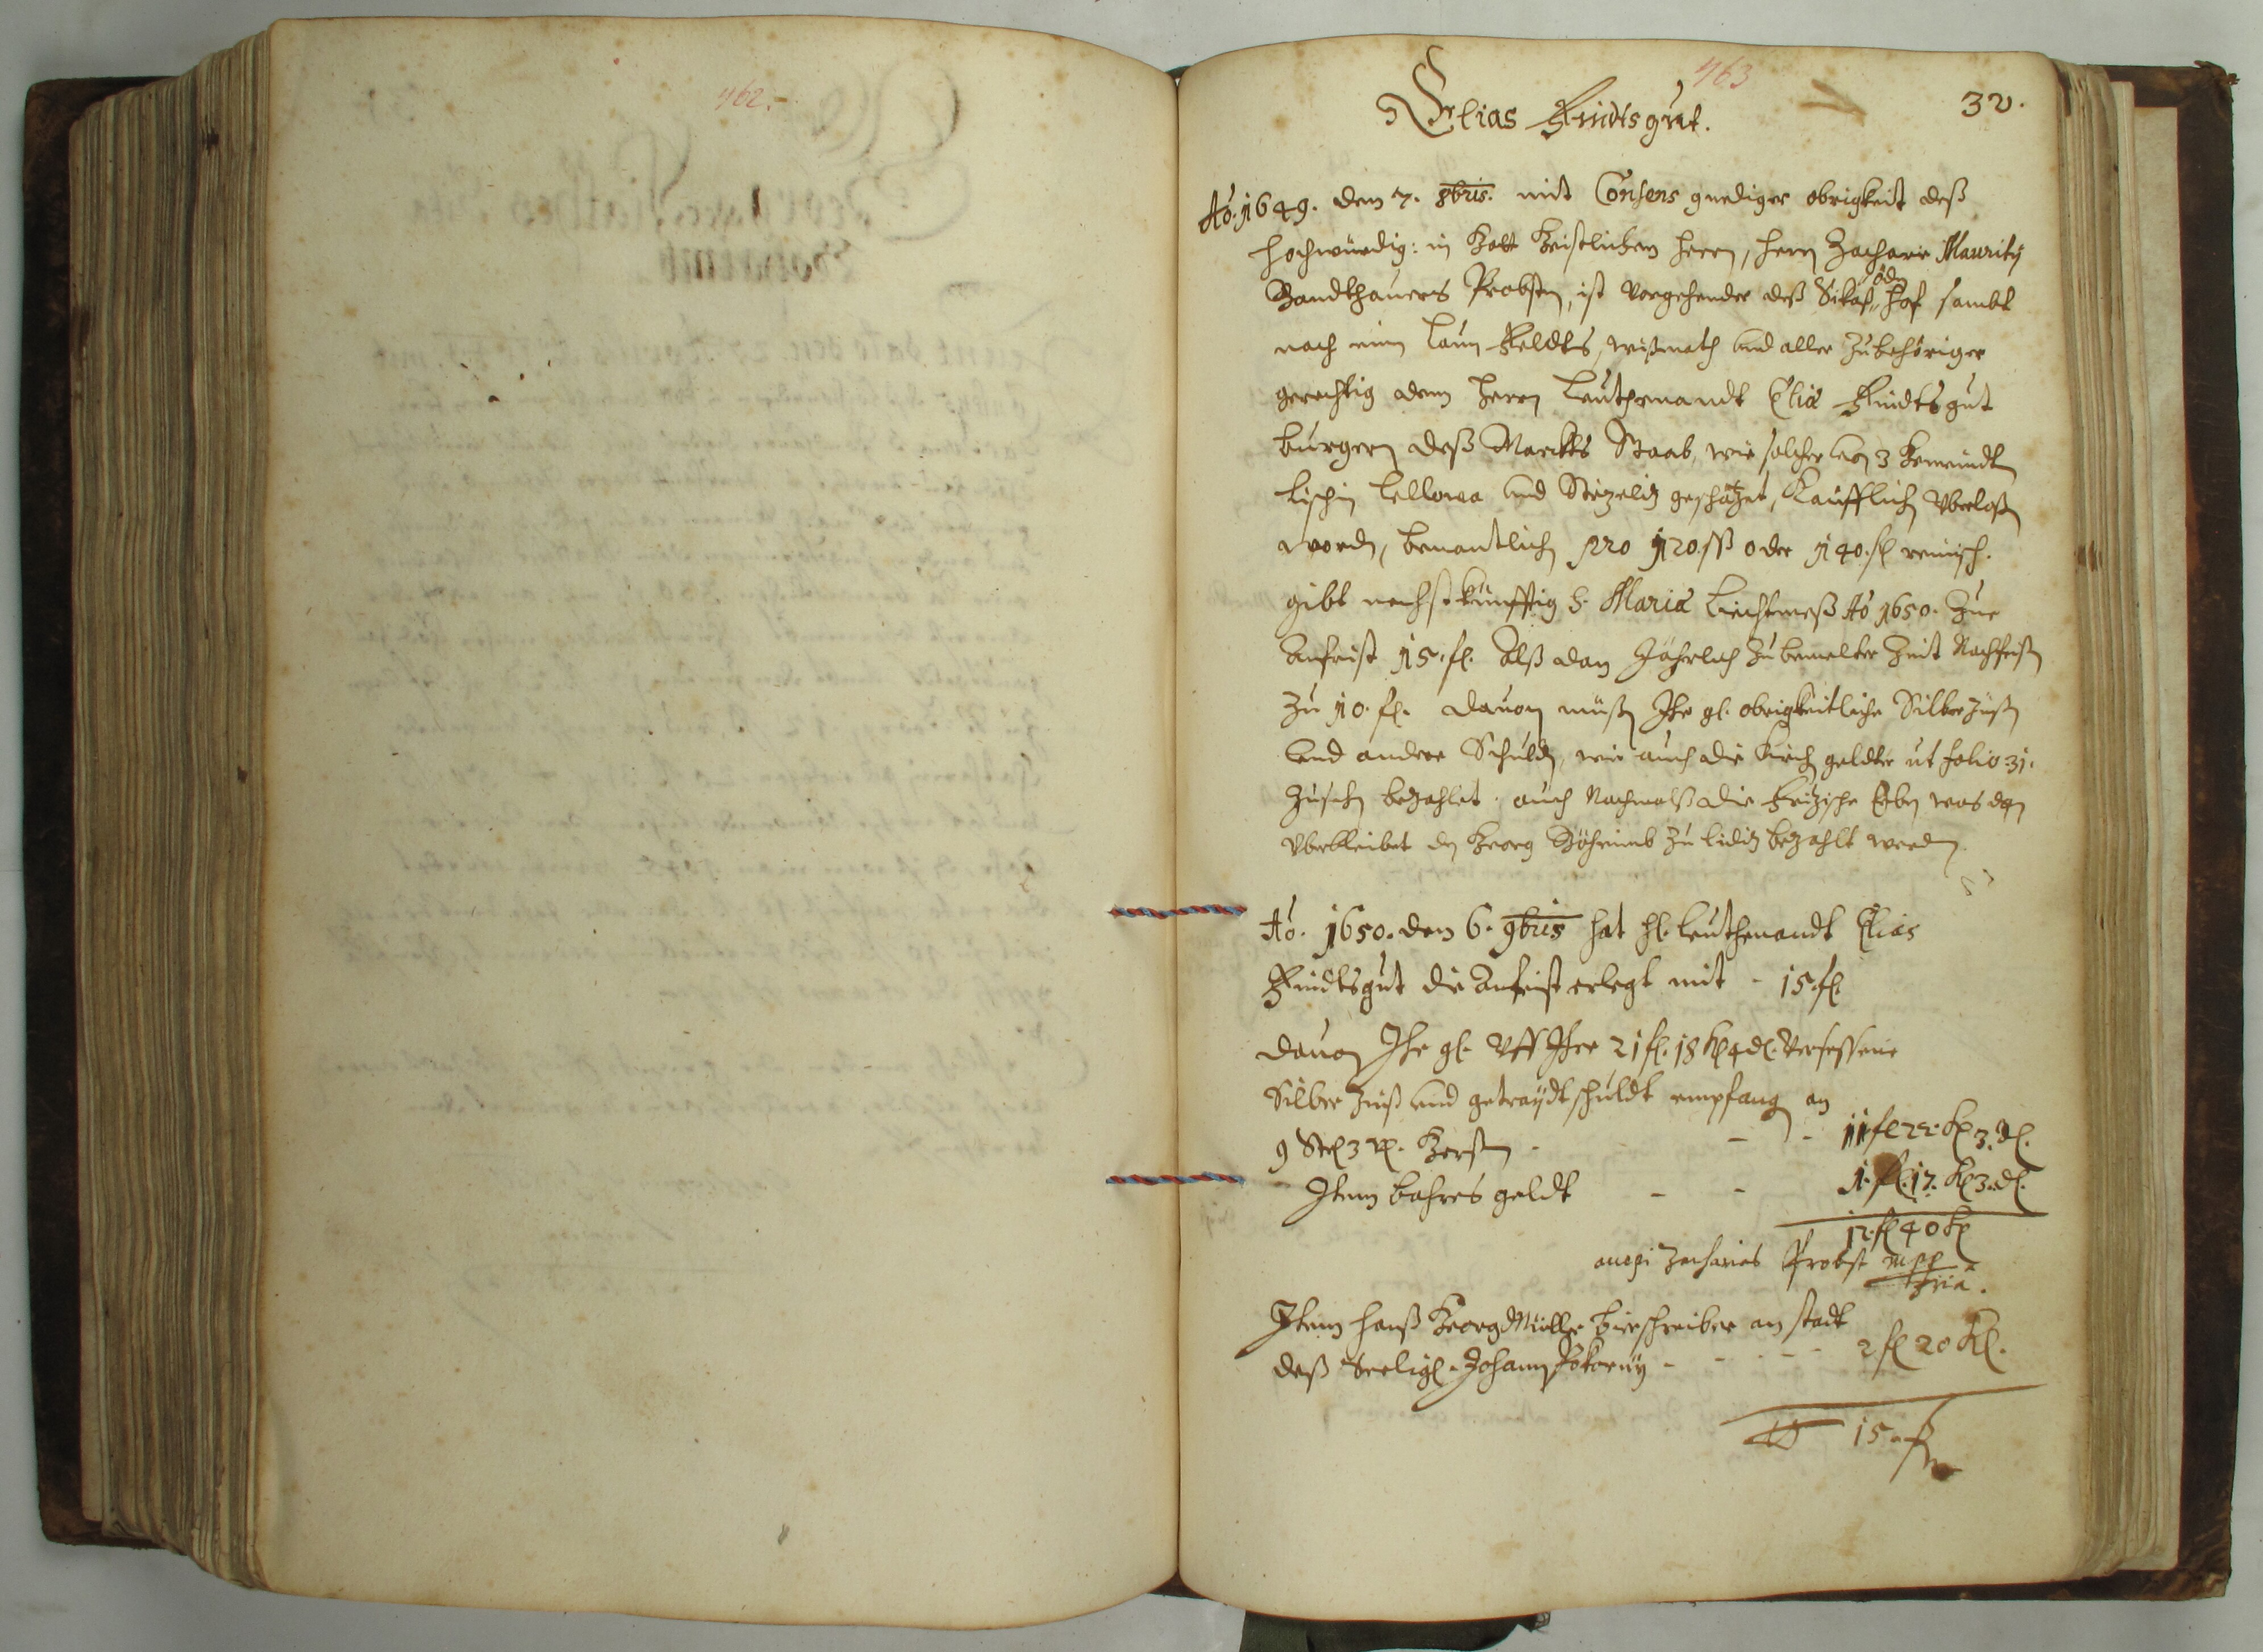 462.
463
32.
Elias Kindtsgut.
Aõ. 1649. den 7. 8bris. mit Consens gnediger obrigkeit deß
Hochwürdig: in Gott Geistlichen Herrn, Herrn Zachariæ Maurity
Bandthauers Probsten, ist vorgehender deß Sikaß
öde
Hof sambt
noch eim Laun Feldts, wißmath und aller zubehöriger
gerechtig dem Herrn Leuthenandt Eliæ Kindtsgut
burgern deß Marckts Staab, wie solcher von 3 Gemeindten
Lischin Lellowa und Stizelitz geschätzet, Kaufflich vberlaßen
worden, benantlich pro 120. ß oder 140. fl reinisch.
gibt nechstkünfftig S. Mariæ Liechtmeß Aõ 1650. zur
Anfrist 15. fl. Alß dan Jährlich zu bemelter Zeit Nachfrist
zu 10. fl. dauon müßen Ihr gl. obrigkeitliche Silberzinßen
und andere Schulden, wie auch die Kirchgeldter ut folio 31.
zusehen bezahlet, auch Nachmalß die Erben was dan
vberbleibet den Georg Böhaimb zu bezahlt werden.
Aõ. 1650. den 6. 9bris hat Hl. Leuthenandt Elias
Kindtsgut die Anfrist erlegt mit - 15. fl.
dauon Ihr gl. Vff Ihre 21 fl. 18 kr 4 dl. Versessene
Silber Zinß und getraydt schuldt empfang an
9 Str 3 vl. Gersten - - - - 11 fl 22. kr 3. dl.
Item bahres geldt - - 1. fl. 17. kr 3. dl.
12. fl 40 kr
Zacharias Probst mpp
ria.
Item Hanß Georg Müller bierschreiber an stadt
deß Seelig. Johann Pokorny - - - - 2 fl 20 kr.
15. fl